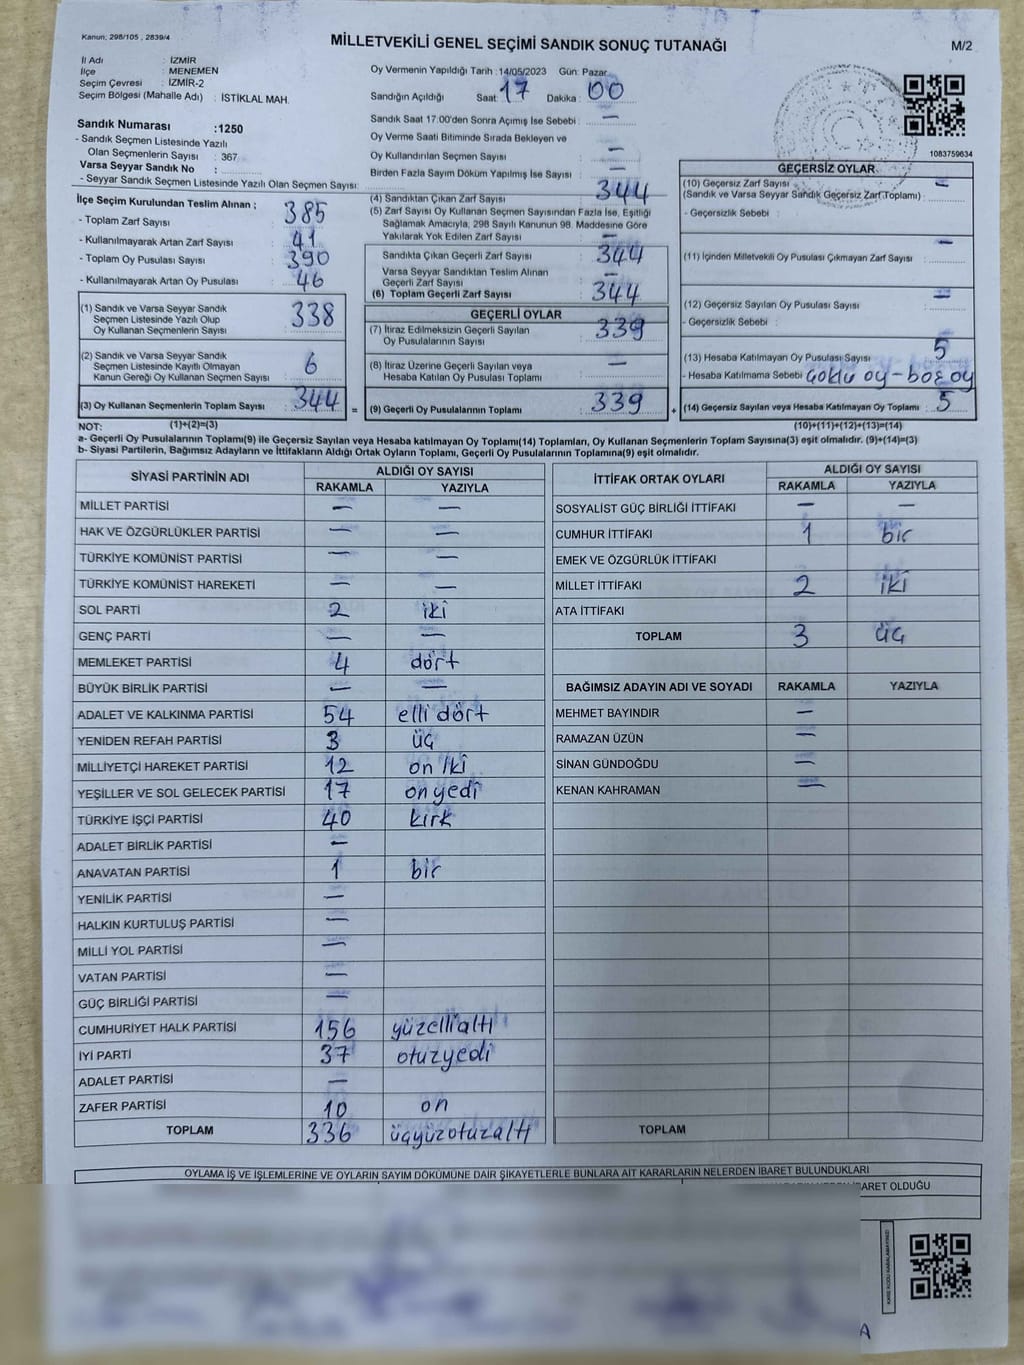 Kanun; 298/105 , 2839/4
MİLLETVEKİLİ GENEL SEÇİMİ SANDIK SONUÇ TUTANAĞI
M/2
İl Adı : İZMİR
İlçe : MENEMEN
Seçim Çevresi : İZMİR-2
Seçim Bölgesi (Mahalle Adı) : İSTİKLAL MAH.
Sandık Numarası :1250
- Sandık Seçmen Listesinde Yazılı
Olan Seçmenlerin Sayısı : 367
Varsa Seyyar Sandık No :
- Seyyar Sandık Seçmen Listesinde Yazılı Olan Seçmen Sayısı:
Oy Vermenin Yapıldığı Tarih :14/05/2023 Gün: Pazar
Sandığın Açıldığı Saat: 17 Dakika: 00
Sandık Saat 17:00'den Sonra Açımış İse Sebebi : —
Oy Verme Saati Bitiminde Sırada Bekleyen ve
Oy Kullandırılan Seçmen Sayısı —
Birden Fazla Sayım Döküm Yapılmış İse Sayısı : —
1083759634
İlçe Seçim Kurulundan Teslim Alınan ;
- Toplam Zarf Sayısı : 385
- Kullanılmayarak Artan Zarf Sayısı : 41
- Toplam Oy Pusulası Sayısı : 390
- Kullanılmayarak Artan Oy Pusulası : 46
(1) Sandık ve Varsa Seyyar Sandık
Seçmen Listesinde Yazılı Olup
Oy Kullanan Seçmenlerin Sayısı : 338
(2) Sandık ve Varsa Seyyar Sandık
Seçmen Listesinde Kayıtlı Olmayan
Kanun Gereği Oy Kullanan Seçmen Sayısı : 6
(3) Oy Kullanan Seçmenlerin Toplam Sayısı : 344 =
(4) Sandıktan Çıkan Zarf Sayısı : 344
(5) Zarf Sayısı Oy Kullanan Seçmen Sayısından Fazla İse, Eşitliği
Sağlamak Amacıyla, 298 Sayılı Kanunun 98. Maddesine Göre
Yakılarak Yok Edilen Zarf Sayısı : —
Sandıkta Çıkan Geçerli Zarf Sayısı : 344
Varsa Seyyar Sandıktan Teslim Alınan
Geçerli Zarf Sayısı : —
(6) Toplam Geçerli Zarf Sayısı : 344
GEÇERLİ OYLAR
(7) İtiraz Edilmeksizin Geçerli Sayılan
Oy Pusulalarının Sayısı : 339
(8) İtiraz Üzerine Geçerli Sayılan veya
Hesaba Katılan Oy Pusulası Toplamı : —
(9) Geçerli Oy Pusulalarının Toplamı : 339 +
GEÇERSİZ OYLAR
(10) Geçersiz Zarf Sayısı —
(Sandık ve Varsa Seyyar Sandık Geçersiz Zarf Toplamı) :
- Geçersizlik Sebebi :
(11) İçinden Milletvekili Oy Pusulası Çıkmayan Zarf Sayısı : —
(12) Geçersiz Sayılan Oy Pusulası Sayısı : —
- Geçersizlik Sebebi :
(13) Hesaba Katılmayan Oy Pusulası Sayısı : 5
- Hesaba Katılmama Sebebi : Çoklu oy - boş oy
(14) Geçersiz Sayılan veya Hesaba Katılmayan Oy Toplamı : 5
NOT: (1)+(2)=(3)
(10)+(11)+(12)+(13)=(14)
a- Geçerli Oy Pusulalarının Toplamı(9) ile Geçersiz Sayılan veya Hesaba katılmayan Oy Toplamı(14) Toplamları, Oy Kullanan Seçmenlerin Toplam Sayısına(3) eşit olmalıdır. (9)+(14)=(3)
b- Siyasi Partilerin, Bağımsız Adayların ve İttifakların Aldığı Ortak Oyların Toplamı, Geçerli Oy Pusulalarının Toplamına(9) eşit olmalıdır.
SİYASİ PARTİNİN ADI ALDIĞI OY SAYISI
RAKAMLA YAZIYLA
MİLLET PARTİSİ — —
HAK VE ÖZGÜRLÜKLER PARTİSİ — —
TÜRKİYE KOMÜNİST PARTİSİ — —
TÜRKİYE KOMÜNİST HAREKETİ — —
SOL PARTİ 2 iki
GENÇ PARTİ — —
MEMLEKET PARTİSİ 4 dört
BÜYÜK BİRLİK PARTİSİ — —
ADALET VE KALKINMA PARTİSİ 54 elli dört
YENİDEN REFAH PARTİSİ 3 üç
MİLLİYETÇİ HAREKET PARTİSİ 12 on iki
YEŞİLLER VE SOL GELECEK PARTİSİ 17 onyedi
TÜRKİYE İŞÇİ PARTİSİ 40 kırk
ADALET BİRLİK PARTİSİ —
ANAVATAN PARTİSİ 1 bir
YENİLİK PARTİSİ —
HALKIN KURTULUŞ PARTİSİ —
MİLLİ YOL PARTİSİ —
VATAN PARTİSİ —
GÜÇ BİRLİĞİ PARTİSİ —
CUMHURİYET HALK PARTİSİ 156 yüzellialtı
İYİ PARTİ 37 otuzyedi
ADALET PARTİSİ —
ZAFER PARTİSİ 10 on
TOPLAM 336 üçyüzotuzaltı
İTTİFAK ORTAK OYLARI ALDIĞI OY SAYISI
RAKAMLA YAZIYLA
SOSYALİST GÜÇ BİRLİĞİ İTTİFAKI — —
CUMHUR İTTİFAKI 1 bir
EMEK VE ÖZGÜRLÜK İTTİFAKI
MİLLET İTTİFAKI 2 iki
ATA İTTİFAKI
TOPLAM 3 üç
BAĞIMSIZ ADAYIN ADI VE SOYADI RAKAMLA YAZIYLA
MEHMET BAYINDIR —
RAMAZAN ÜZÜN —
SİNAN GÜNDOĞDU —
KENAN KAHRAMAN —
TOPLAM
OYLAMA İŞ VE İŞLEMLERİNE VE OYLARIN SAYIM DÖKÜMÜNE DAİR ŞİKAYETLERLE BUNLARA AİT KARARLARIN NELERDEN İBARET BULUNDUKLARI
OLDUĞU
KARE KODU KARALAMAYINIZ!